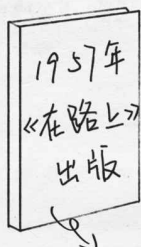 1957年
《在路上》
出版